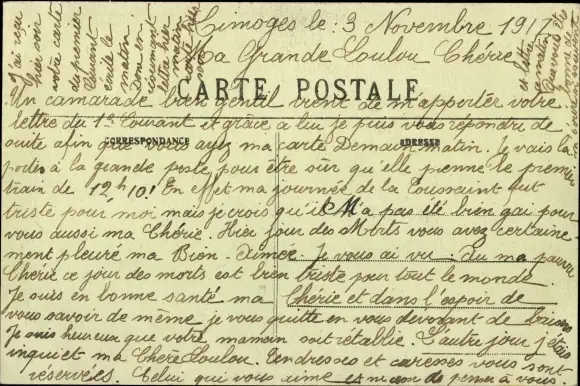 Limoges le: 3 Novembre 1917
Ma Grande Loulou Chérie
CARTE POSTALE
Un camarade bien gentil vient de m'apporter votre
lettre du 1er Courant et grâce a lui je puis vous répondre de
suite afin que vous ayez ma carte Demain matin. Je vais la
CORRESPONDANCE
ADRESSE
porter à la grande poste pour être sûr qu'elle prenne le premier
train de 12h10! En effet ma journée de la Toussaint fut
triste pour moi mais je crois qu'il M'a pas été bien gai pour
vous aussi ma Chérie. Hier jour des Morts vous avez certaine
ment pleuré ma Bien-Aimée. Je vous ai vu. Oui ma pauvre
Chérie ce jour des morts est bien triste pour tout le monde.
Je suis en bonne santé ma Chérie et dans l'espoir de
vous savoir de même je vous quitte en vous de
Je suis heureux que votre maman soit rétablie. L'autre jour j'étais
inquiet ma Chère Loulou. Tendresses et caresses vous sont
réservées. Celui qui vous aime et pense à vous.
J'ai reçu
hier soir
votre carte
du premier
Courant
écrite le
matin.
Donc en
résumant
lettre hier
matin
carte hier
soir
et lettre
ce matin